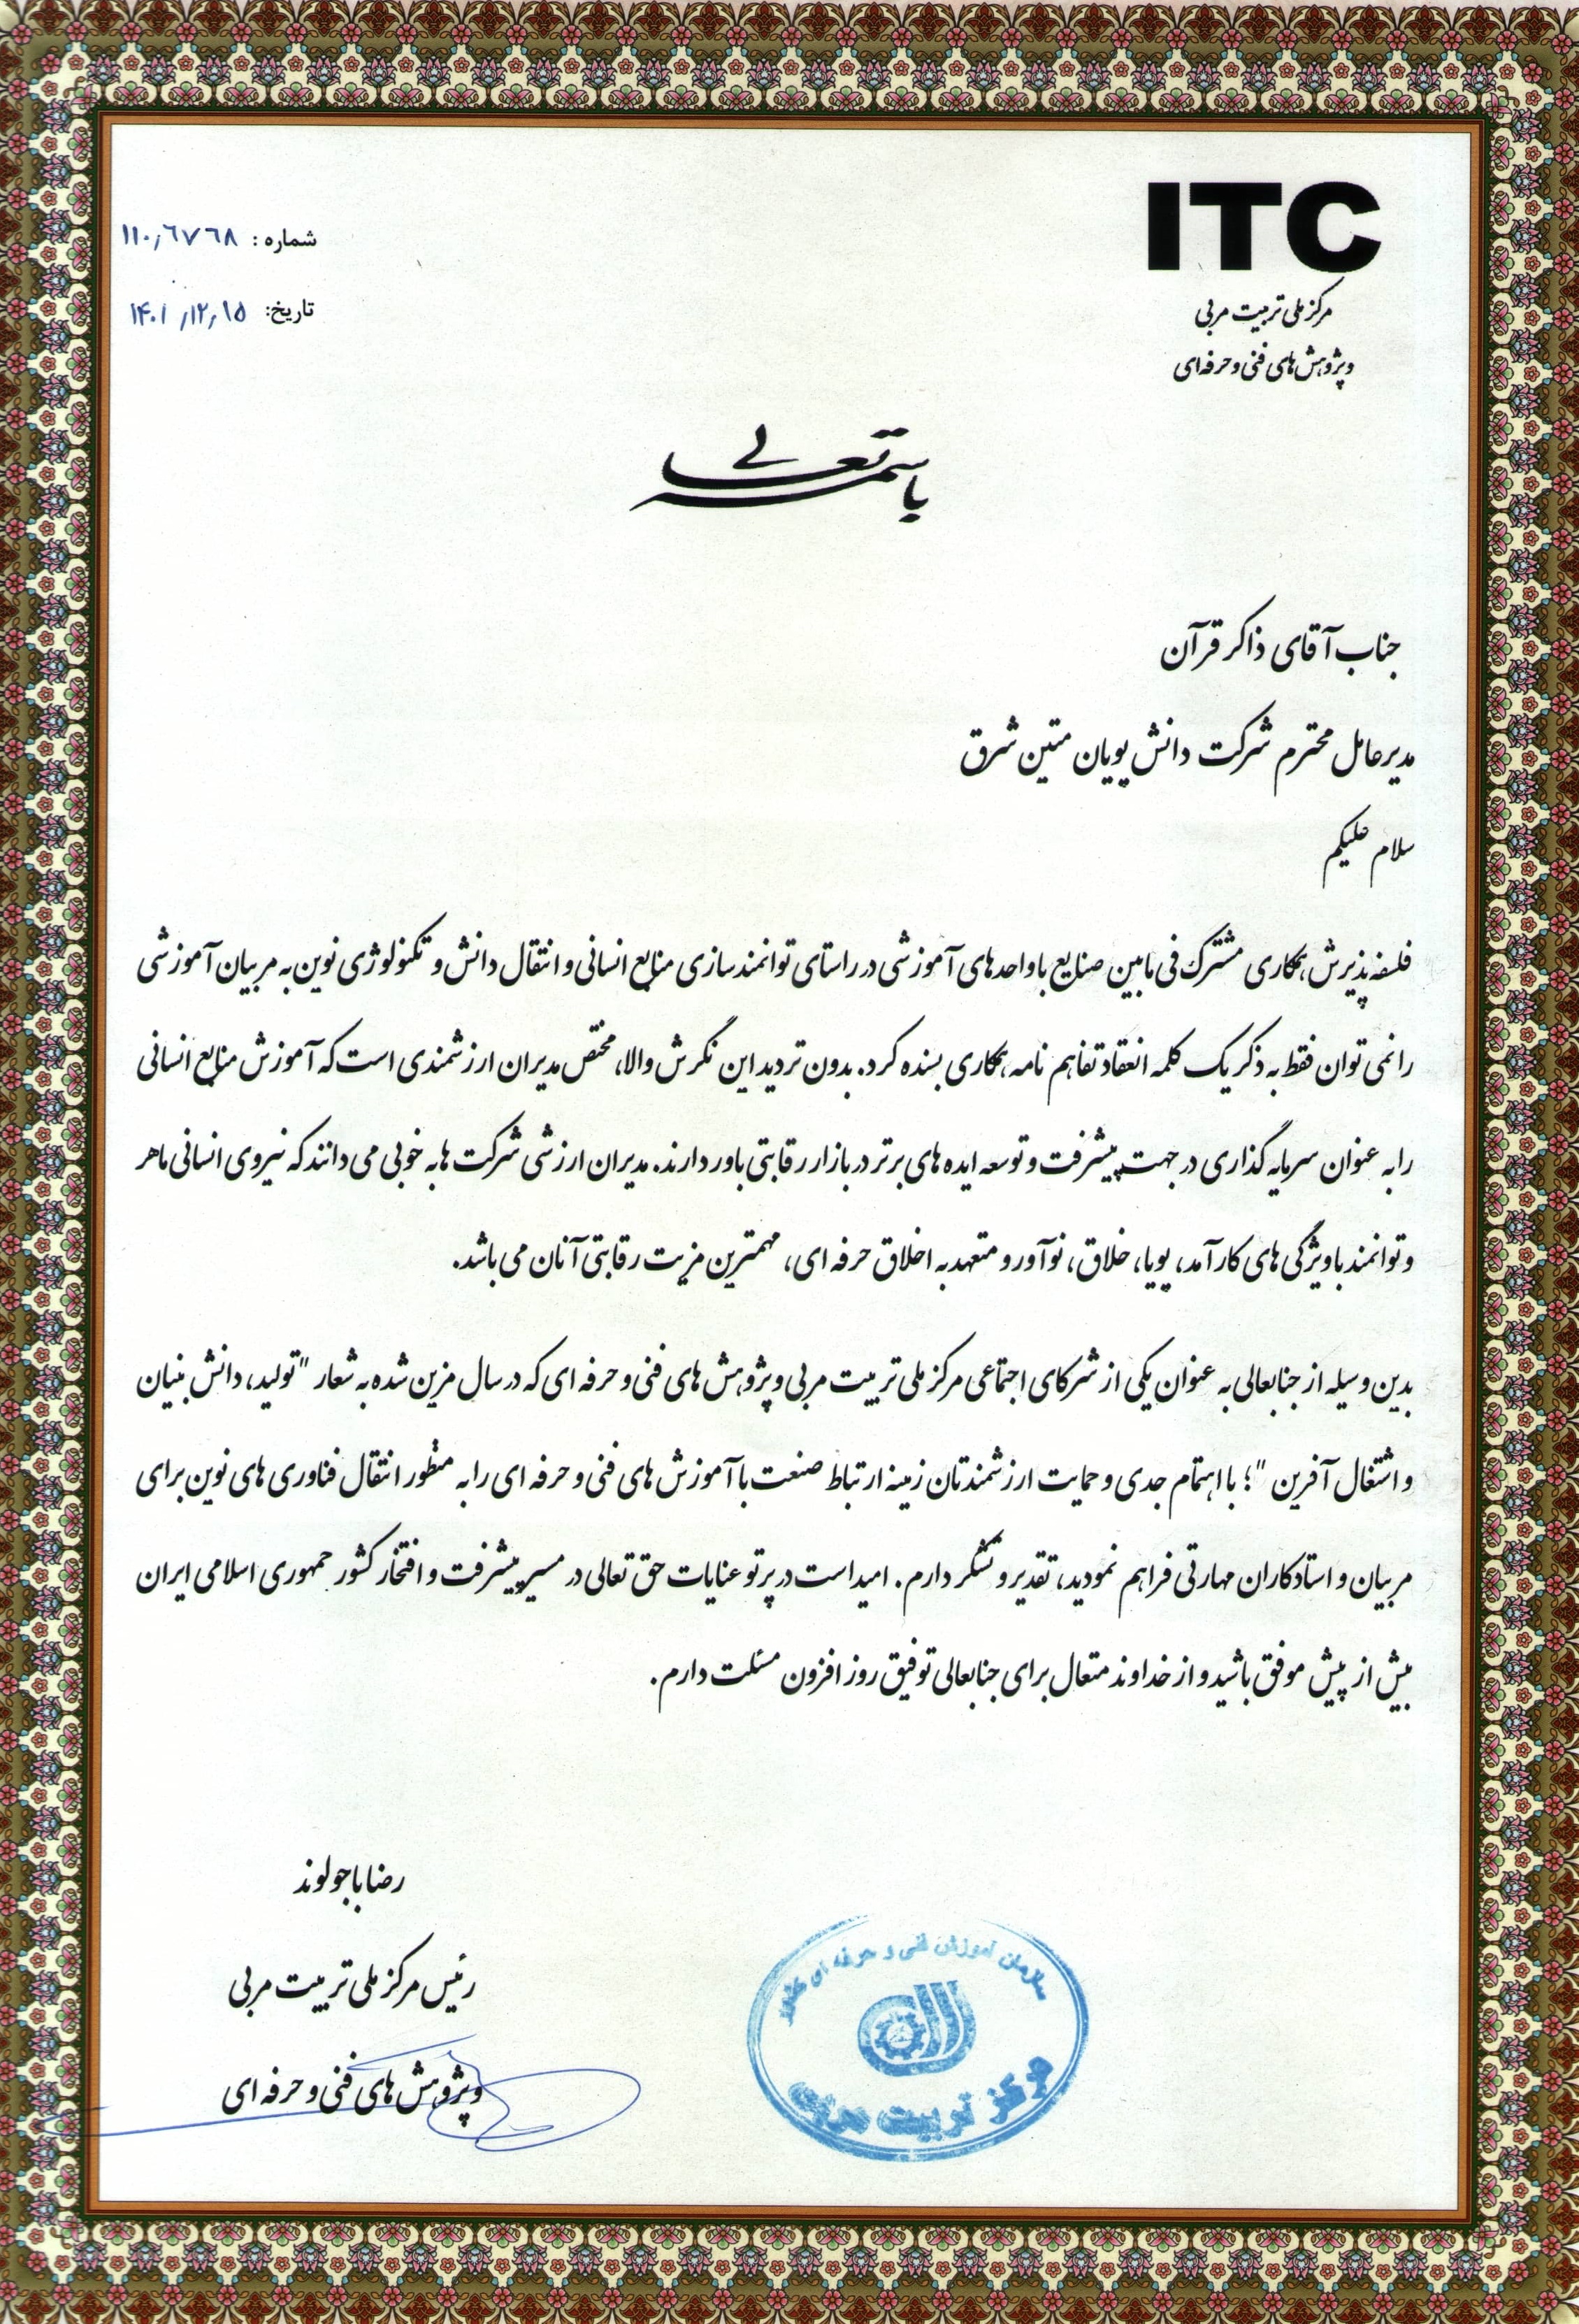 ITC
مرکز ملی تربیت مربی
و پژوهش های فنی و حرفه ای
شماره : ۱۱۰٫۶۷۶۸
تاریخ: ۱۴۰۱٫۱۲٫۱۵
باسمه تعالی
جناب آقای ذاکر قرآن
مدیر عامل محترم شرکت دانش پویان متین شرق
سلام علیکم
فلسفه پذیرش همکاری مشترک فی مابین صنایع با واحدهای آموزشی در راستای توانمند سازی منابع انسانی و انتقال دانش و تکنولوژی نوین به مربیان آموزشی
را نمی توان فقط به ذکر یک کلمه انعقاد تفاهم نامه همکاری بسنده کرد. بدون تردید این نگرش والا، مختص مدیران ارزشمندی است که آموزش منابع انسانی
را به عنوان سرمایه گذاری در جهت پیشرفت و توسعه ایده های برتر در بازار رقابتی باور دارند. مدیران ارزشی شرکت ها به خوبی می دانند که نیروی انسانی ماهر
و توانمند با ویژگی های کارآمد، پویا، خلاق، نوآور و متعهد به اخلاق حرفه ای، مهمترین مزیت رقابتی آنان می باشد.
بدین وسیله از جنابعالی به عنوان یکی از شرکای اجتماعی مرکز ملی تربیت مربی و پژوهش های فنی و حرفه ای که در سال مزین شده به شعار "تولید، دانش بنیان
و اشتغال آفرین "؛ با اهتمام جدی و حمایت ارزشمندتان زمینه ارتباط صنعت با آموزش های فنی و حرفه ای را به منظور انتقال فناوری های نوین برای
مربیان و استادکاران مهارتی فراهم نمودید، تقدیر و تشکر دارم. امید است در پرتو عنایات حق تعالی در مسیر پیشرفت و افتخار کشور جمهوری اسلامی ایران
بیش از پیش موفق باشید و از خداوند متعال برای جنابعالی توفیق روز افزون مسئلت دارم.
رضا باجولوند
رئیس مرکز ملی تربیت مربی
و پژوهش های فنی و حرفه ای
سازمان آموزش فنی و حرفه ای کشور
مرکز تربیت مربی